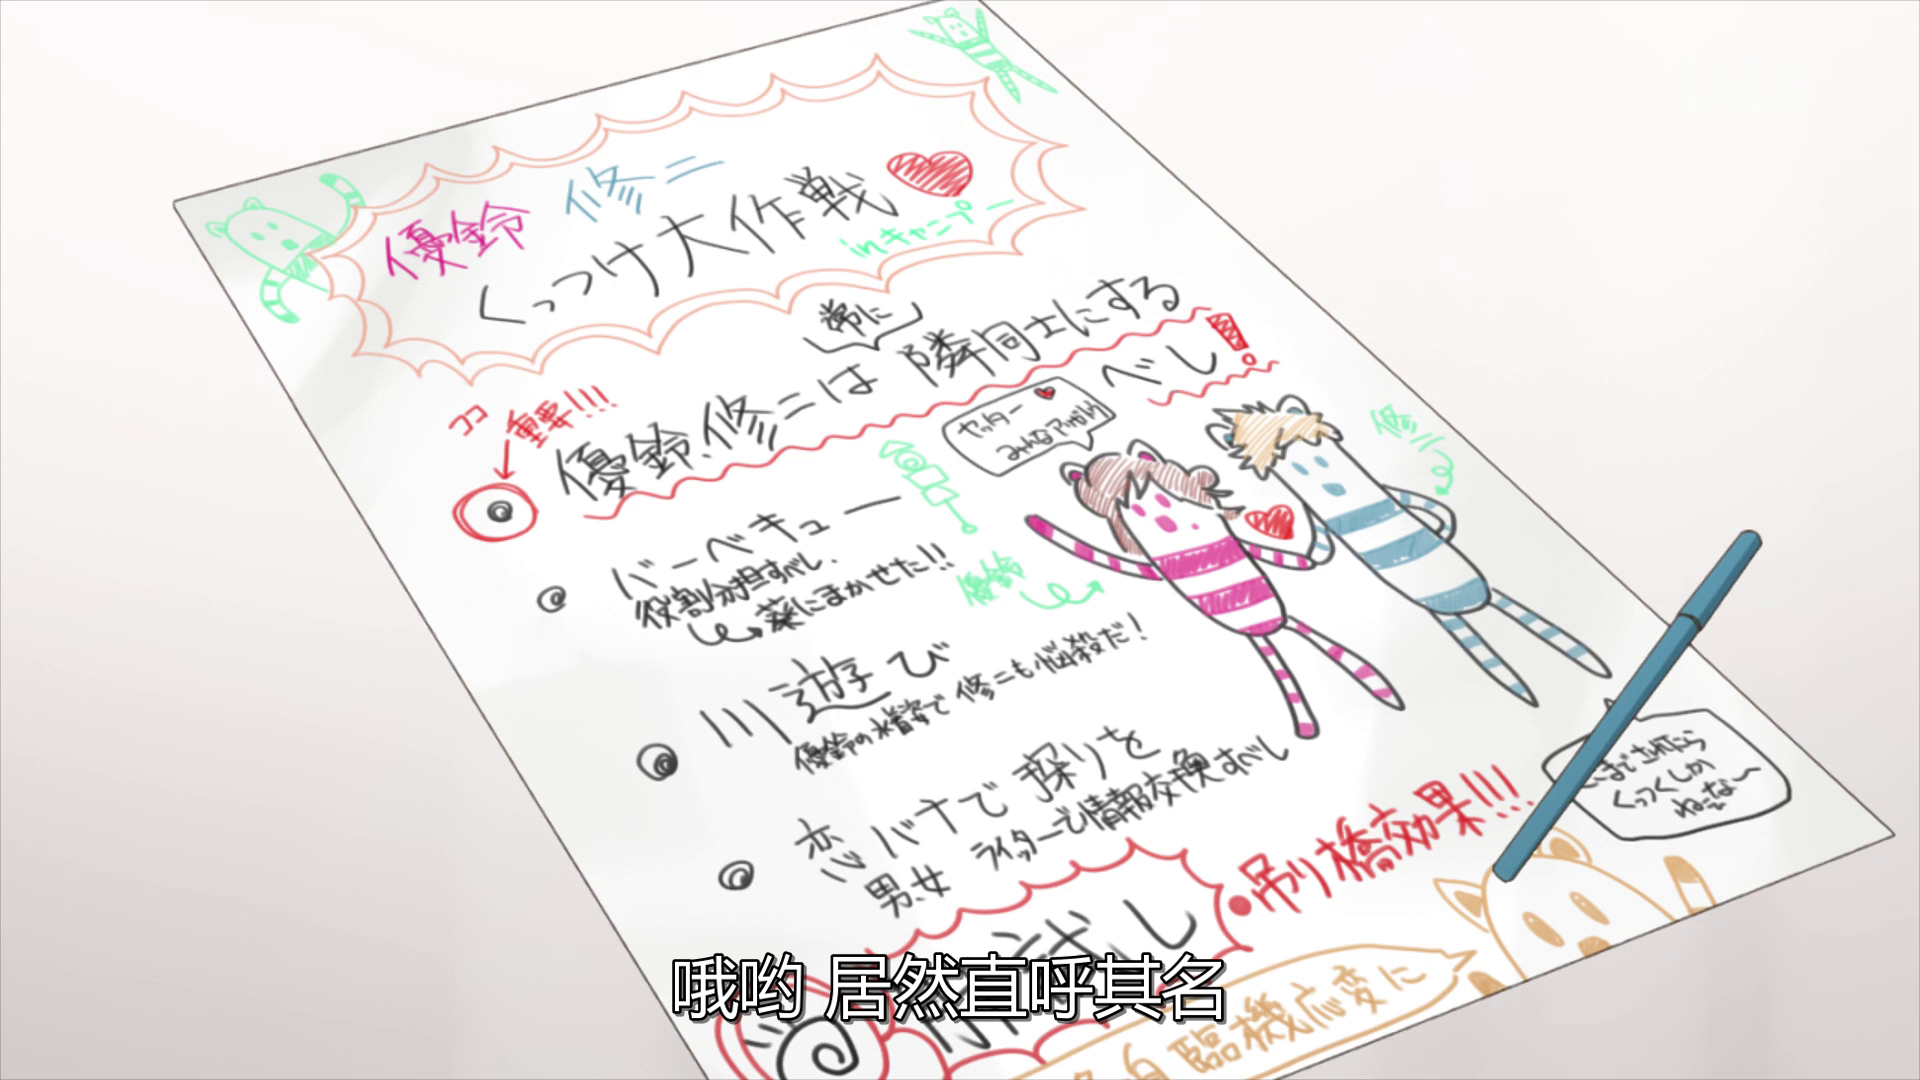 優鈴 修二
くっつけ大作戦
inキャンプー
常に
優鈴、修二は 隣同士にする
べし!
ココ
重要!!!
ヤッター
みんなアリガトウ
修二
バーベキュー
役割分担すべし、
葵にまかせた!!
優鈴
川遊び
優鈴の水着姿で修二も悩殺だ!
恋バナで探りを
男女 ライターで情報交換すべし
ここまでされたら
くっつくしか
ねーなー
・吊り橋効果!!!
試し
臨機応変に
哦哟 居然直呼其名